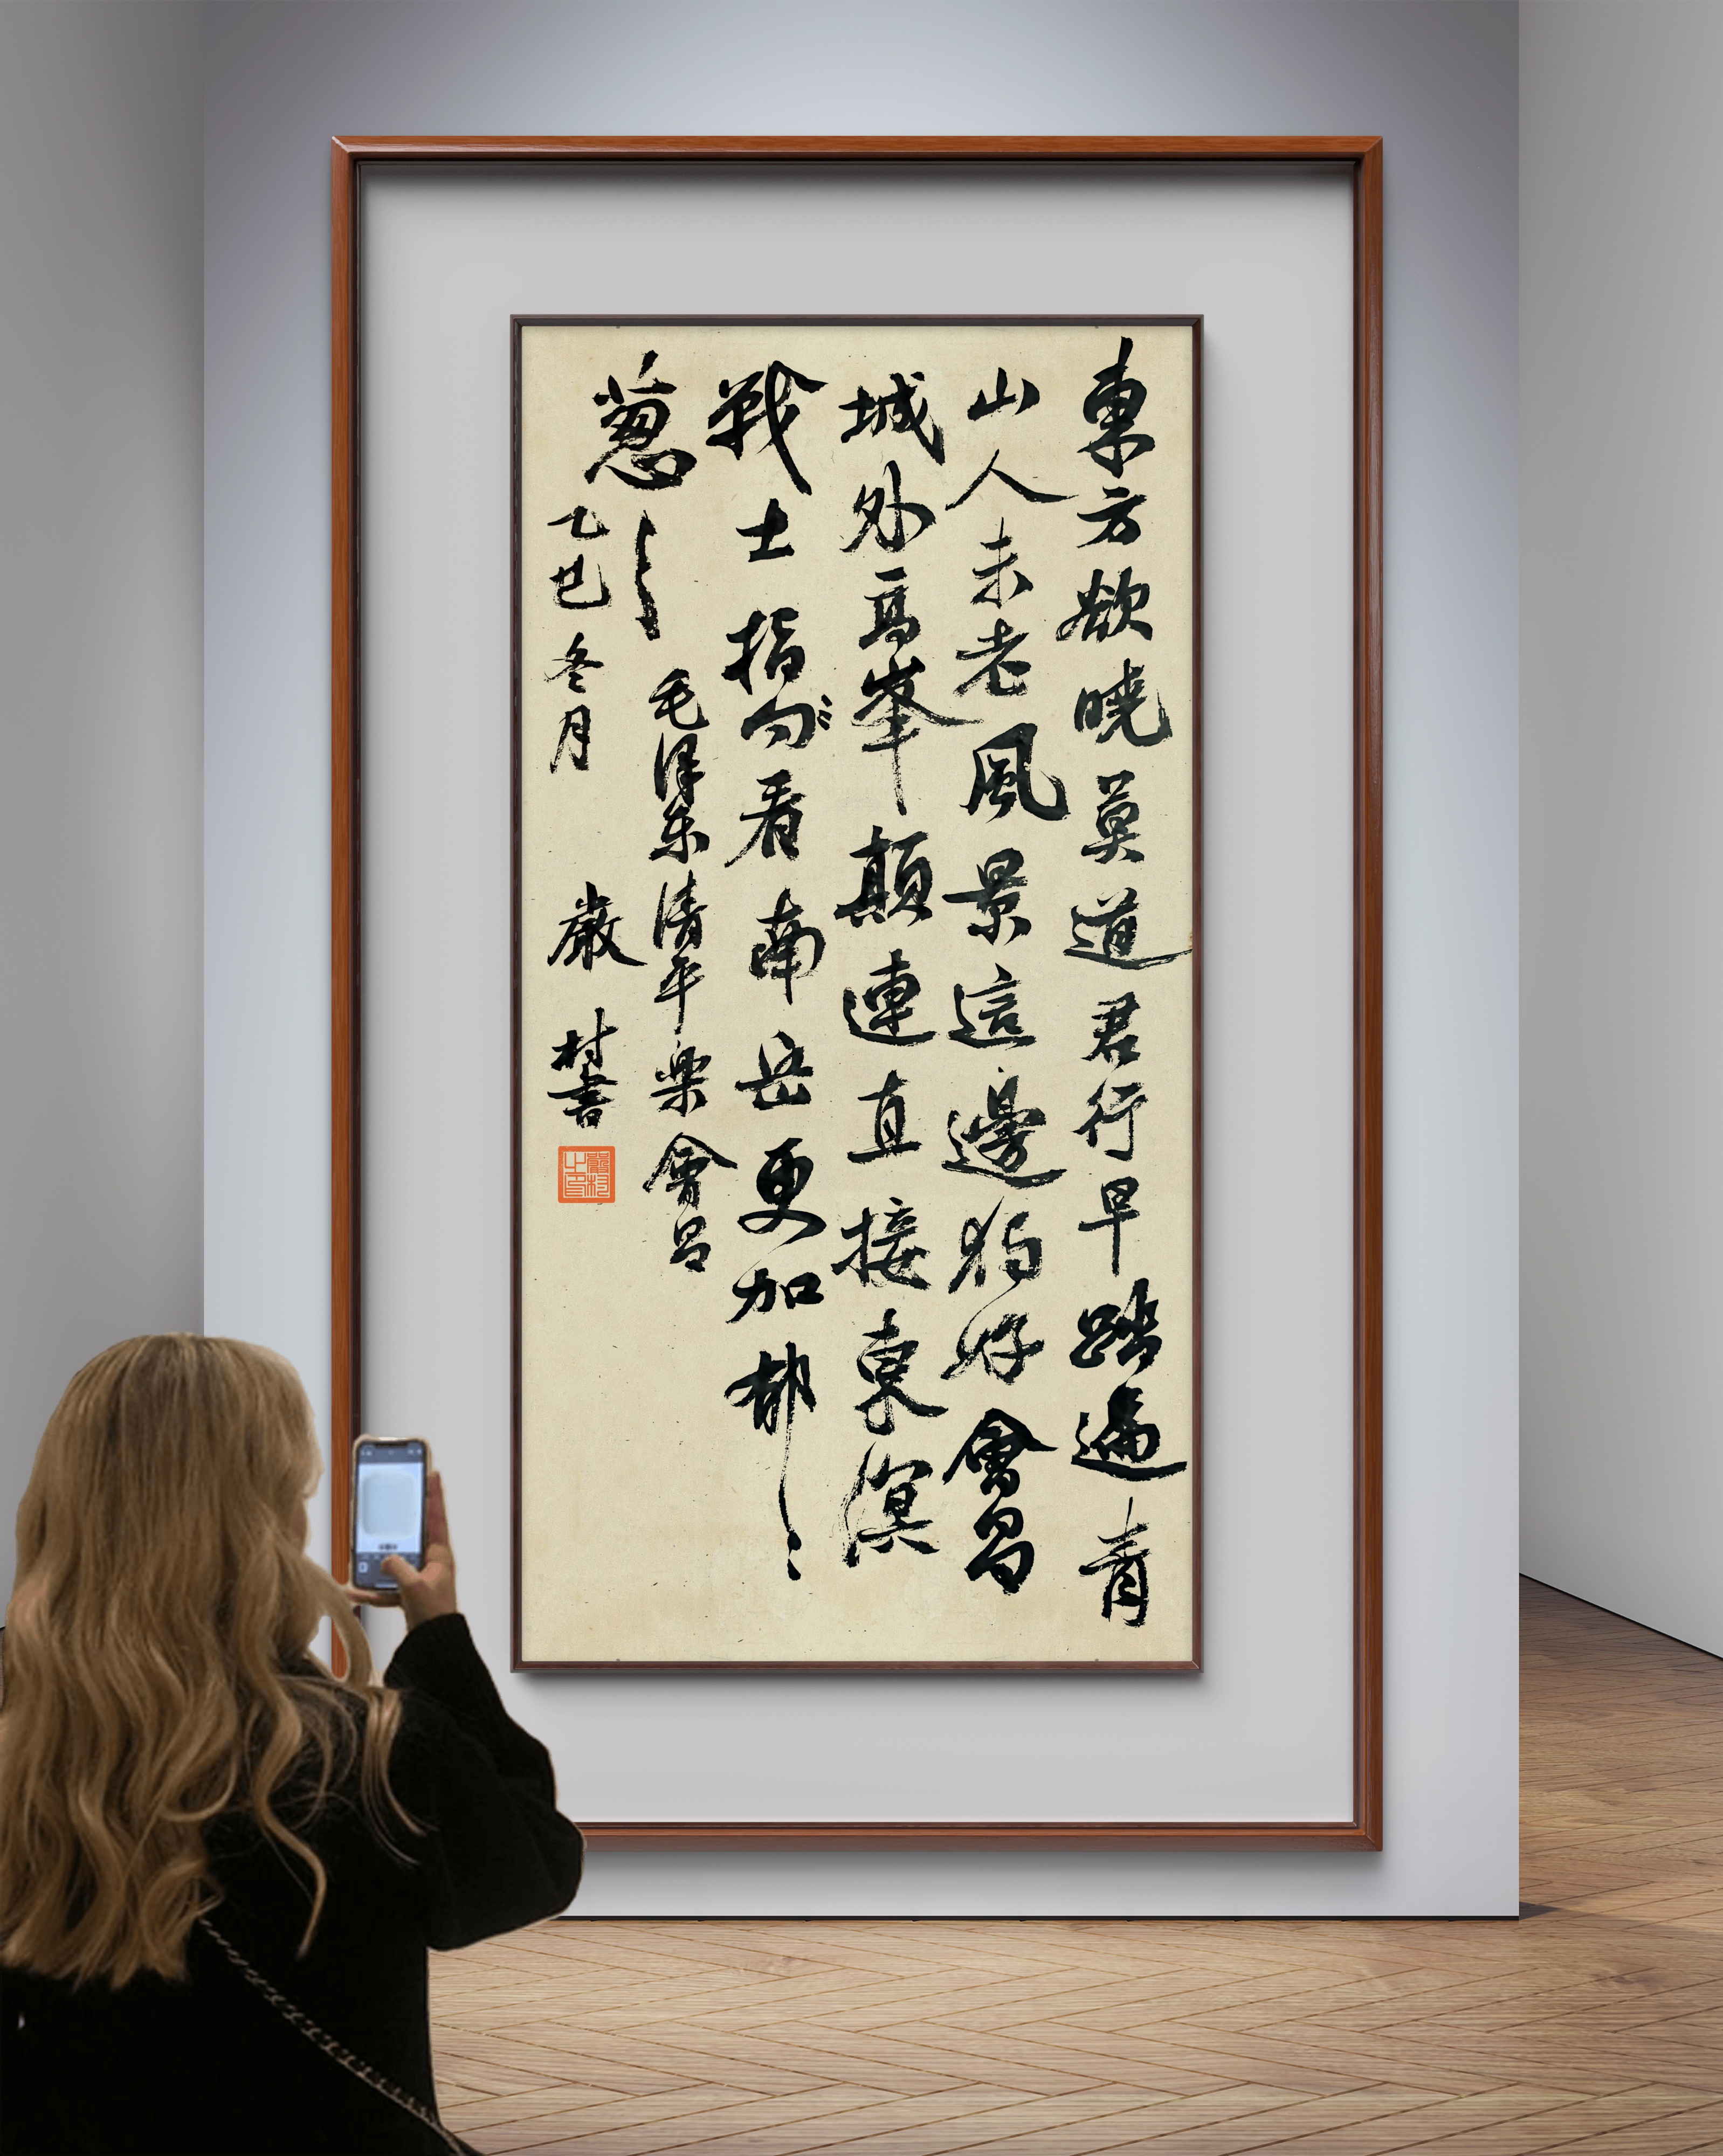 東方欲曉莫道君行早踏遍青
山人未老風景這邊獨好會昌
城外高峯顛連直接東溟
戰士指向看南岳更加郁〻
葱〻毛泽东清平樂會昌
乙巳冬月 嚴村書
嚴村之印